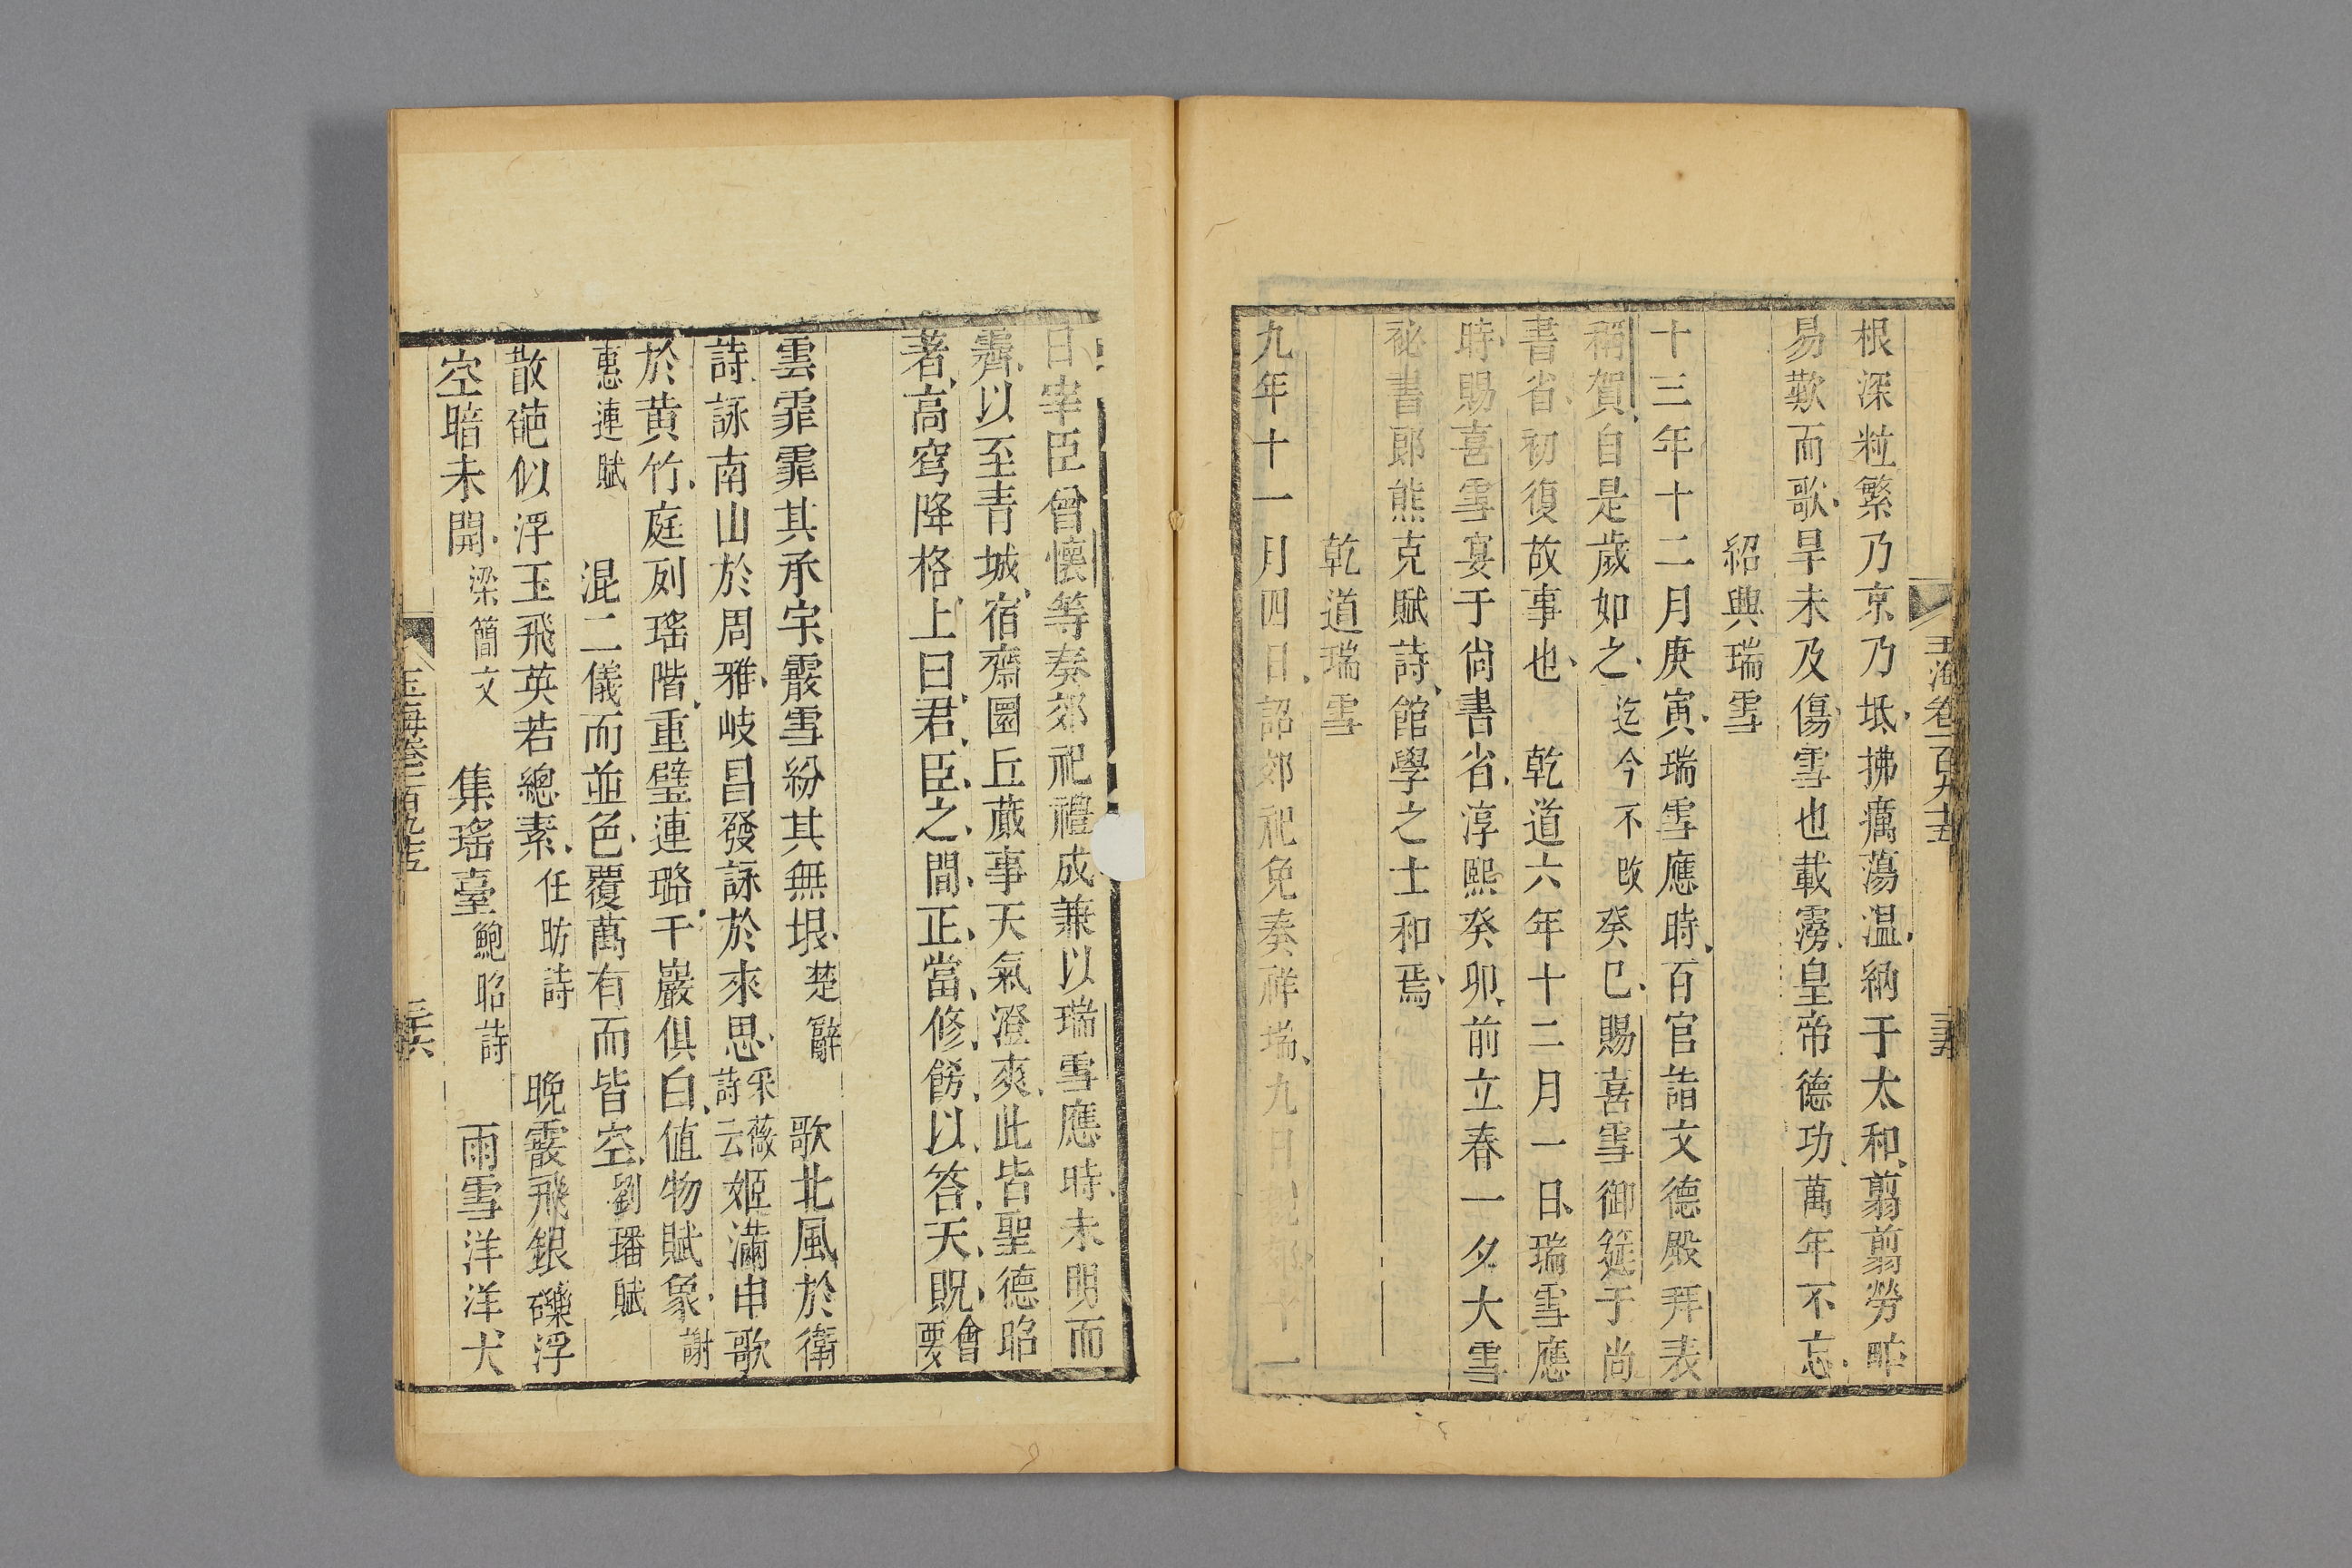 玉海卷一百九十五
三五
根深粒繁乃京乃坻拂癘蕩温納于太和翦翦勞畤
易歎而歌旱未及傷雪也載霶皇帝德功萬年不忘
紹興瑞雪
十三年十二月庚寅瑞雪應時百官詣文德殿拜表
稱賀自是歲如之迄今不改癸巳賜喜雪御筵于尚
書省初復故事也 乾道六年十二月一日瑞雪應
時賜喜雪宴于尚書省淳熙癸卯前立春一夕大雪
祕書郎熊克賦詩館學之士和焉
乾道瑞雪
九年十一月四日詔郊祀免奏祥瑞九日十一
日宰臣曾懷等奏郊祀禮成兼以瑞雪應時未明而
霽以至青城宿齋圜丘蕆事天氣澄爽此皆聖德昭
著高穹降格上曰君臣之間正當修飭以答天貺會要
雲霏霏其承宇霰雪紛其無垠楚辭 歌北風於衛
詩詠南山於周雅岐昌發詠於來思采薇詩云姬滿申歌
於黄竹庭列瑤階重璧連璐千巖俱白值物賦象謝
惠連賦 混二儀而並色覆萬有而皆空劉璠賦
散葩似浮玉飛英若總素任昉詩 晚霰飛銀礫浮
空暗未開梁簡文 集瑤臺鮑昭詩 雨雪洋洋犬
玉海卷一百九十五
三六